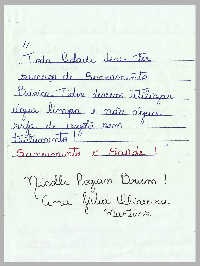 "
Toda Cidade deve ter
serviço de Saneamento
Básico. Todos devem utilizar
água limpa e não água
suja de esgoto sem
tratamento "
Saneamento é Saúde!
Nicolle Rogian Brum!
Ana Júlia